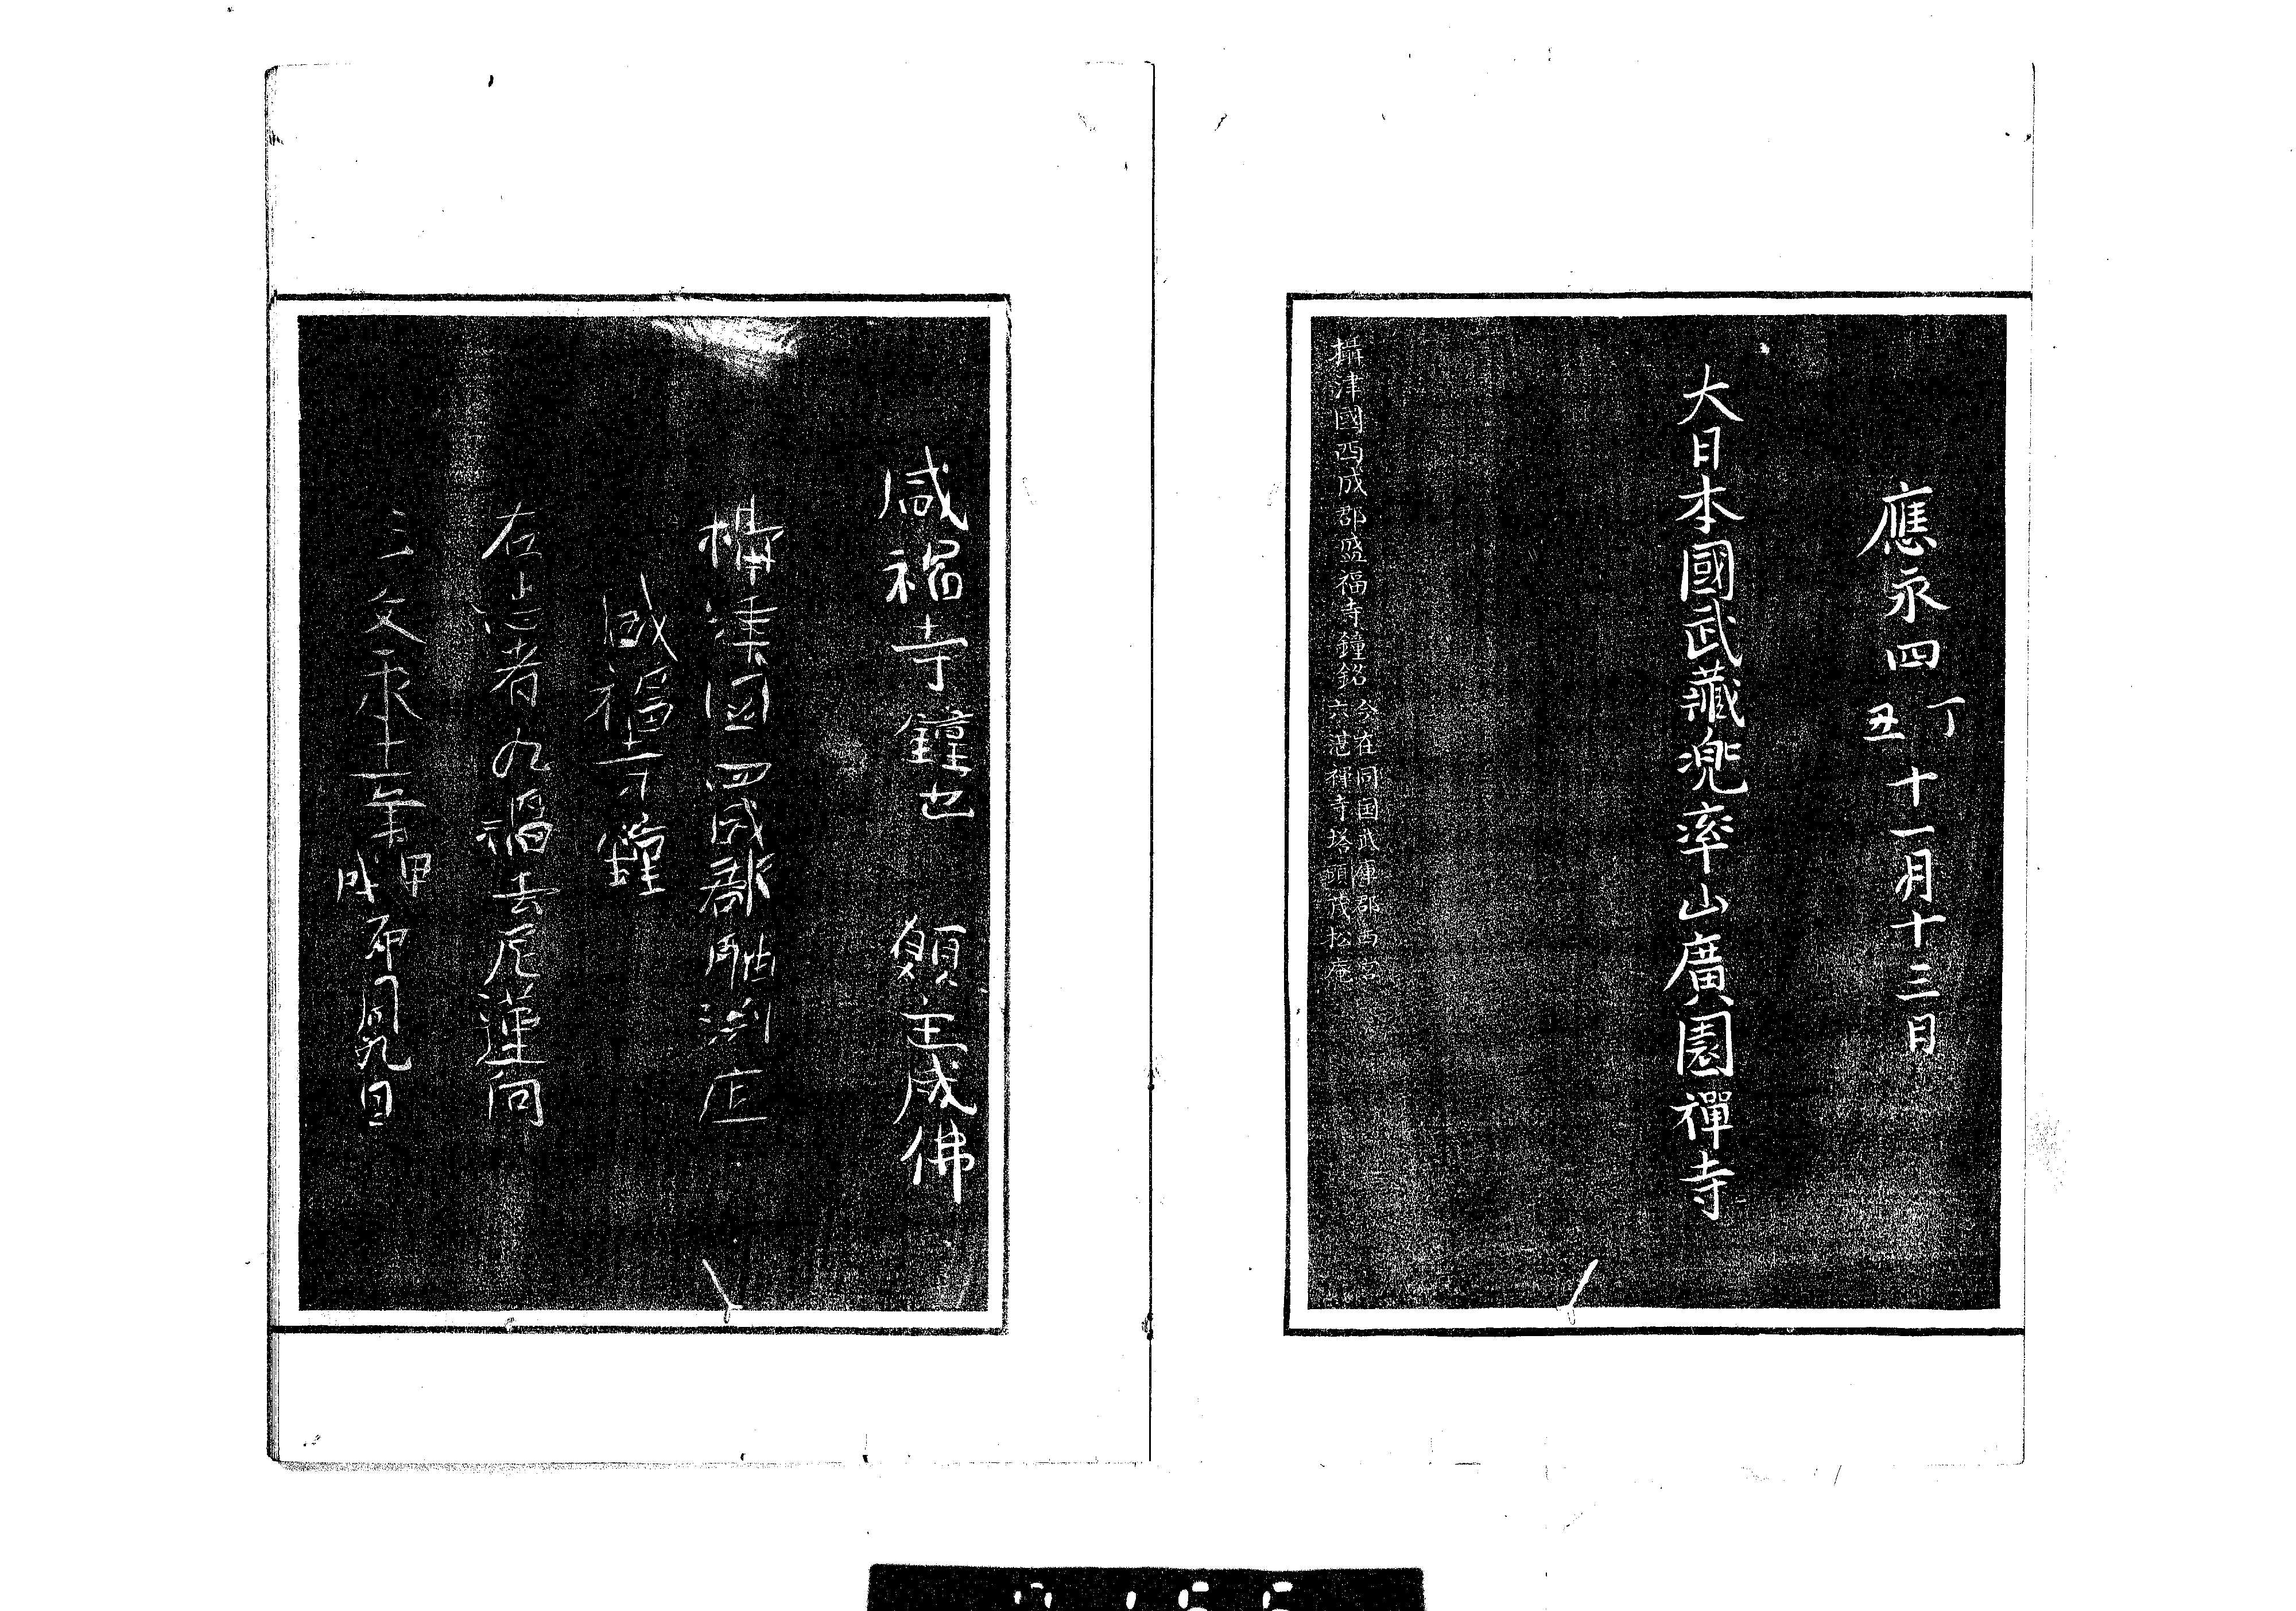 應永四丁丑十一月十三日
大日本國武藏兜率山廣園禪寺
攝津國西成郡盛福寺鐘銘今在同国武庫郡西宮六湛禅寺塔頭茂松庵
盛福寺鐘也 願主成佛
攝津国四成郡 庄
盛福寺鐘
右 者 福 尼蓮同
三文永十一年甲戌 月九日